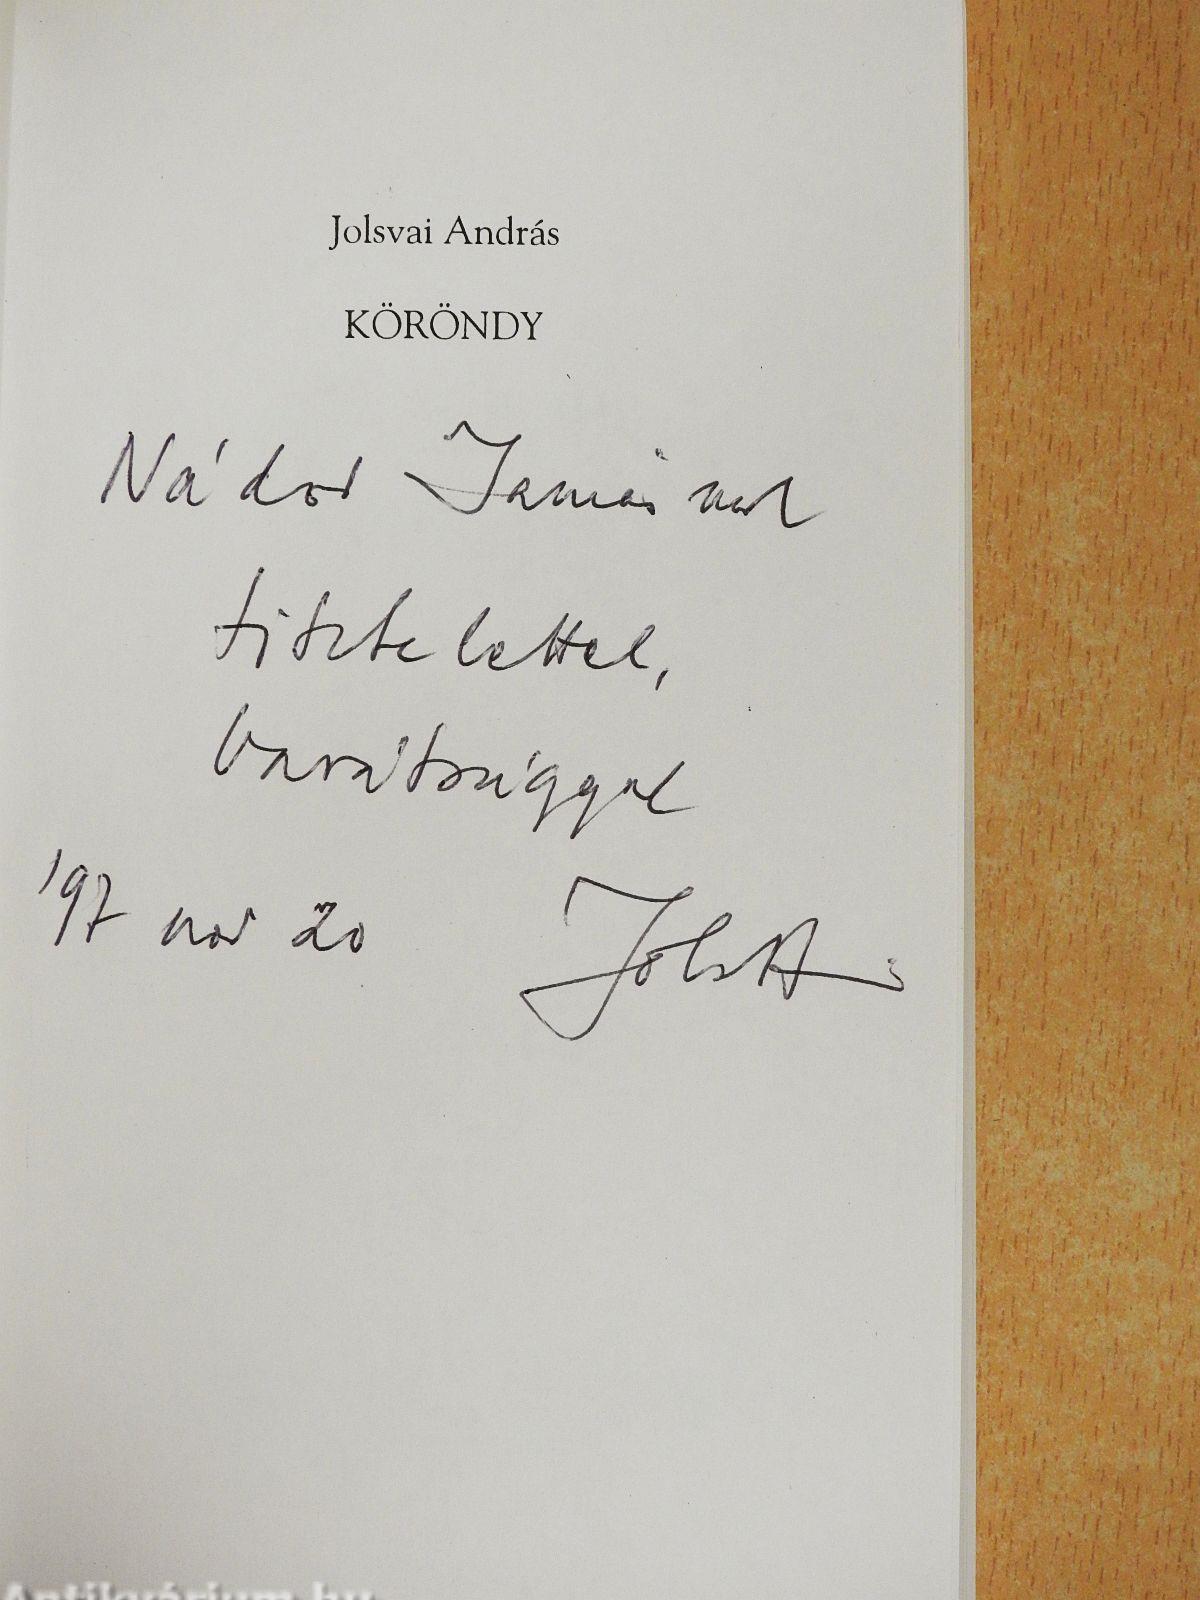 Jolsvai András
KÖRÖNDY
Nádor Tamásnak
tisztelettel,
barátsággal
'97 nov 20
Jolsvai
Antikvárium.hu